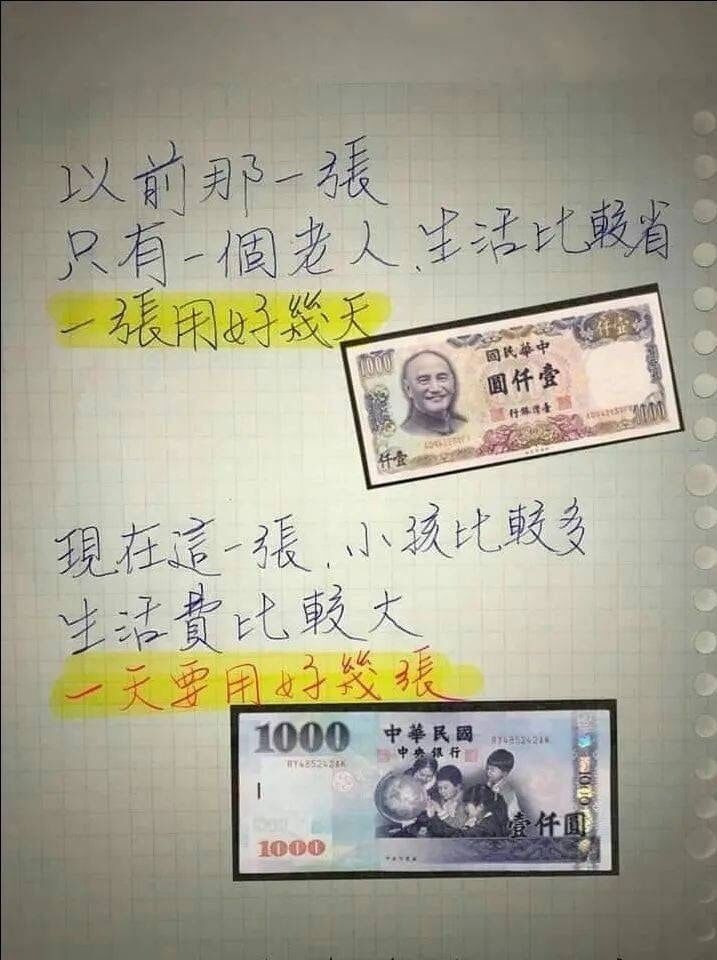 以前那一張
只有一個老人、生活比較省
一張用好幾天
1000
仟壹
中華民國
壹仟圓
臺灣銀行
1000
仟壹
現在這一張、小孩比較多
生活費比較大
一天要用好幾張
1000
中華民國
中央銀行
RY485242AK
RY485242AK
壹仟圓
1000